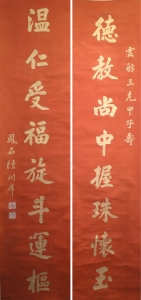 雲舫三兄甲子壽
德敖尚中握珠懷玉
温仁受福旋斗運樞
鳳石陸潤庠